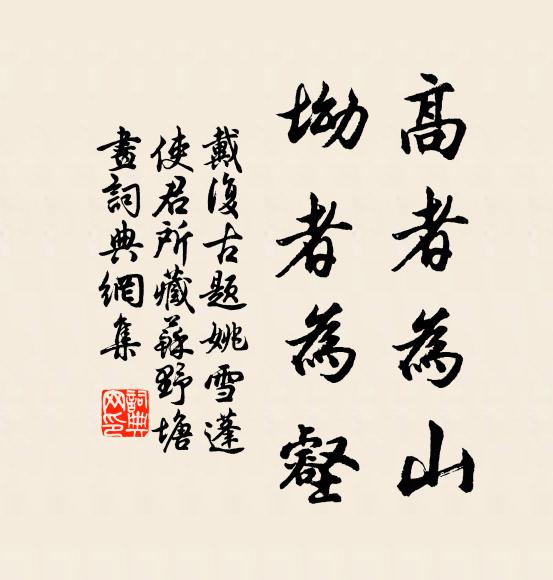 高者為山
坳者為壑
戴復古題姚雪蓬
使君所藏蘇野塘
畫詞典網集
詞典网印